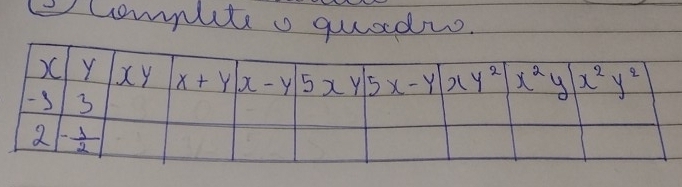 3) Complete o quadro.
x y xy x+y x-y 5xy 5x-y xy² x²y x²y²
-1 3
2 -1/2